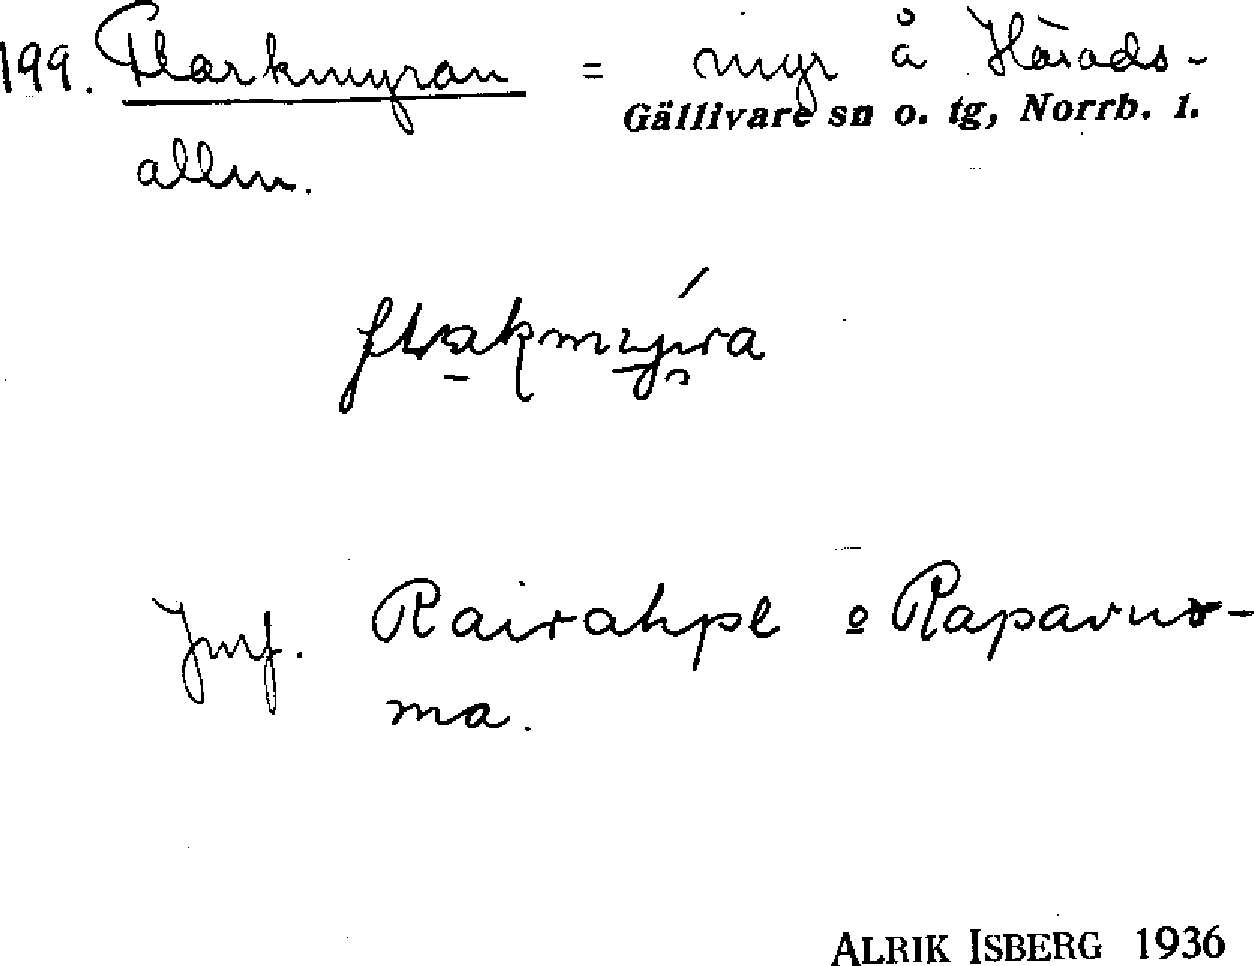 199. Flarkmyran = myr å Härads-
Gällivare sn o. tg, Norrb. l.
allm.
Jmf. Rairahpe o Raparus-
ma.
ALRIK ISBERG 1936